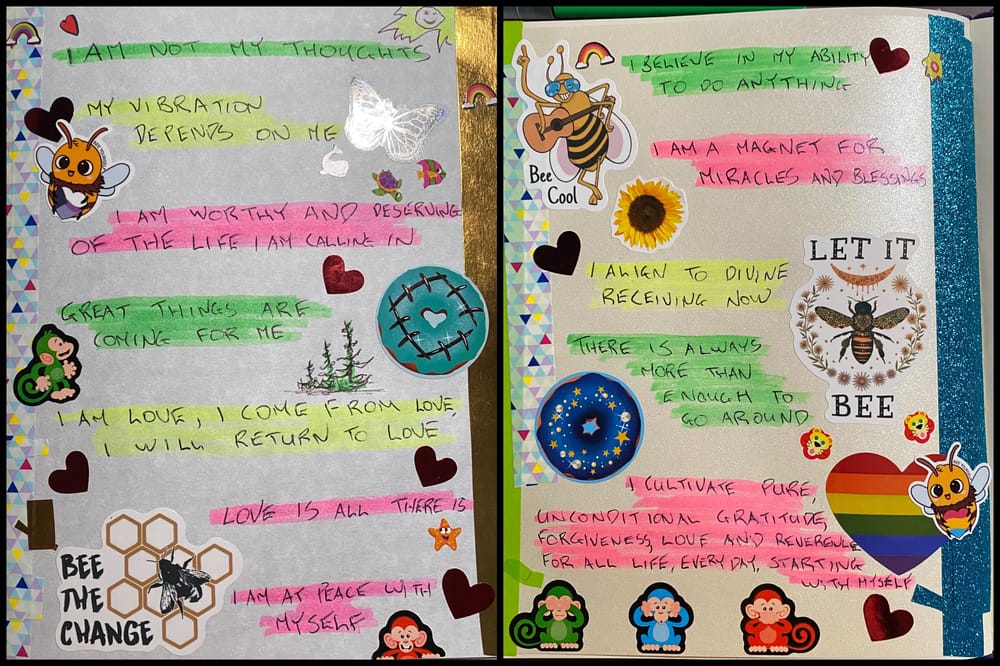 I AM NOT MY THOUGHTS
MY VIBRATION
DEPENDS ON ME
I AM WORTHY AND DESERVING
OF THE LIFE I AM CALLING IN
GREAT THINGS ARE
COMING FOR ME
I AM LOVE, I COME FROM LOVE,
I WILL RETURN TO LOVE
LOVE IS ALL THERE IS
BEE
THE
CHANGE
I AM AT PEACE WITH
MYSELF
I BELIEVE IN MY ABILITY
TO DO ANYTHING
Bee
Cool
I AM A MAGNET FOR
MIRACLES AND BLESSINGS
LET IT
BEE
I ALIGN TO DIVINE
RECEIVING NOW
THERE IS ALWAYS
MORE THAN
ENOUGH TO
GO AROUND
I CULTIVATE PURE,
UNCONDITIONAL GRATITUDE,
FORGIVENESS, LOVE AND REVERENCE
FOR ALL LIFE, EVERY DAY, STARTING
WITH MYSELF